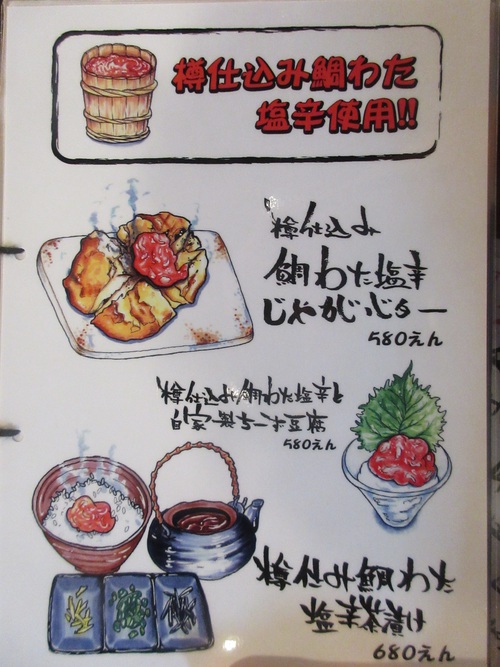 樽仕込み鯛わた
塩辛使用!!
樽仕込み
鯛わた塩辛
じゃがバター
580えん
樽仕込み鯛わた塩辛と
自家製チーズ豆腐
580えん
樽仕込み鯛わた
塩辛茶漬け
680えん